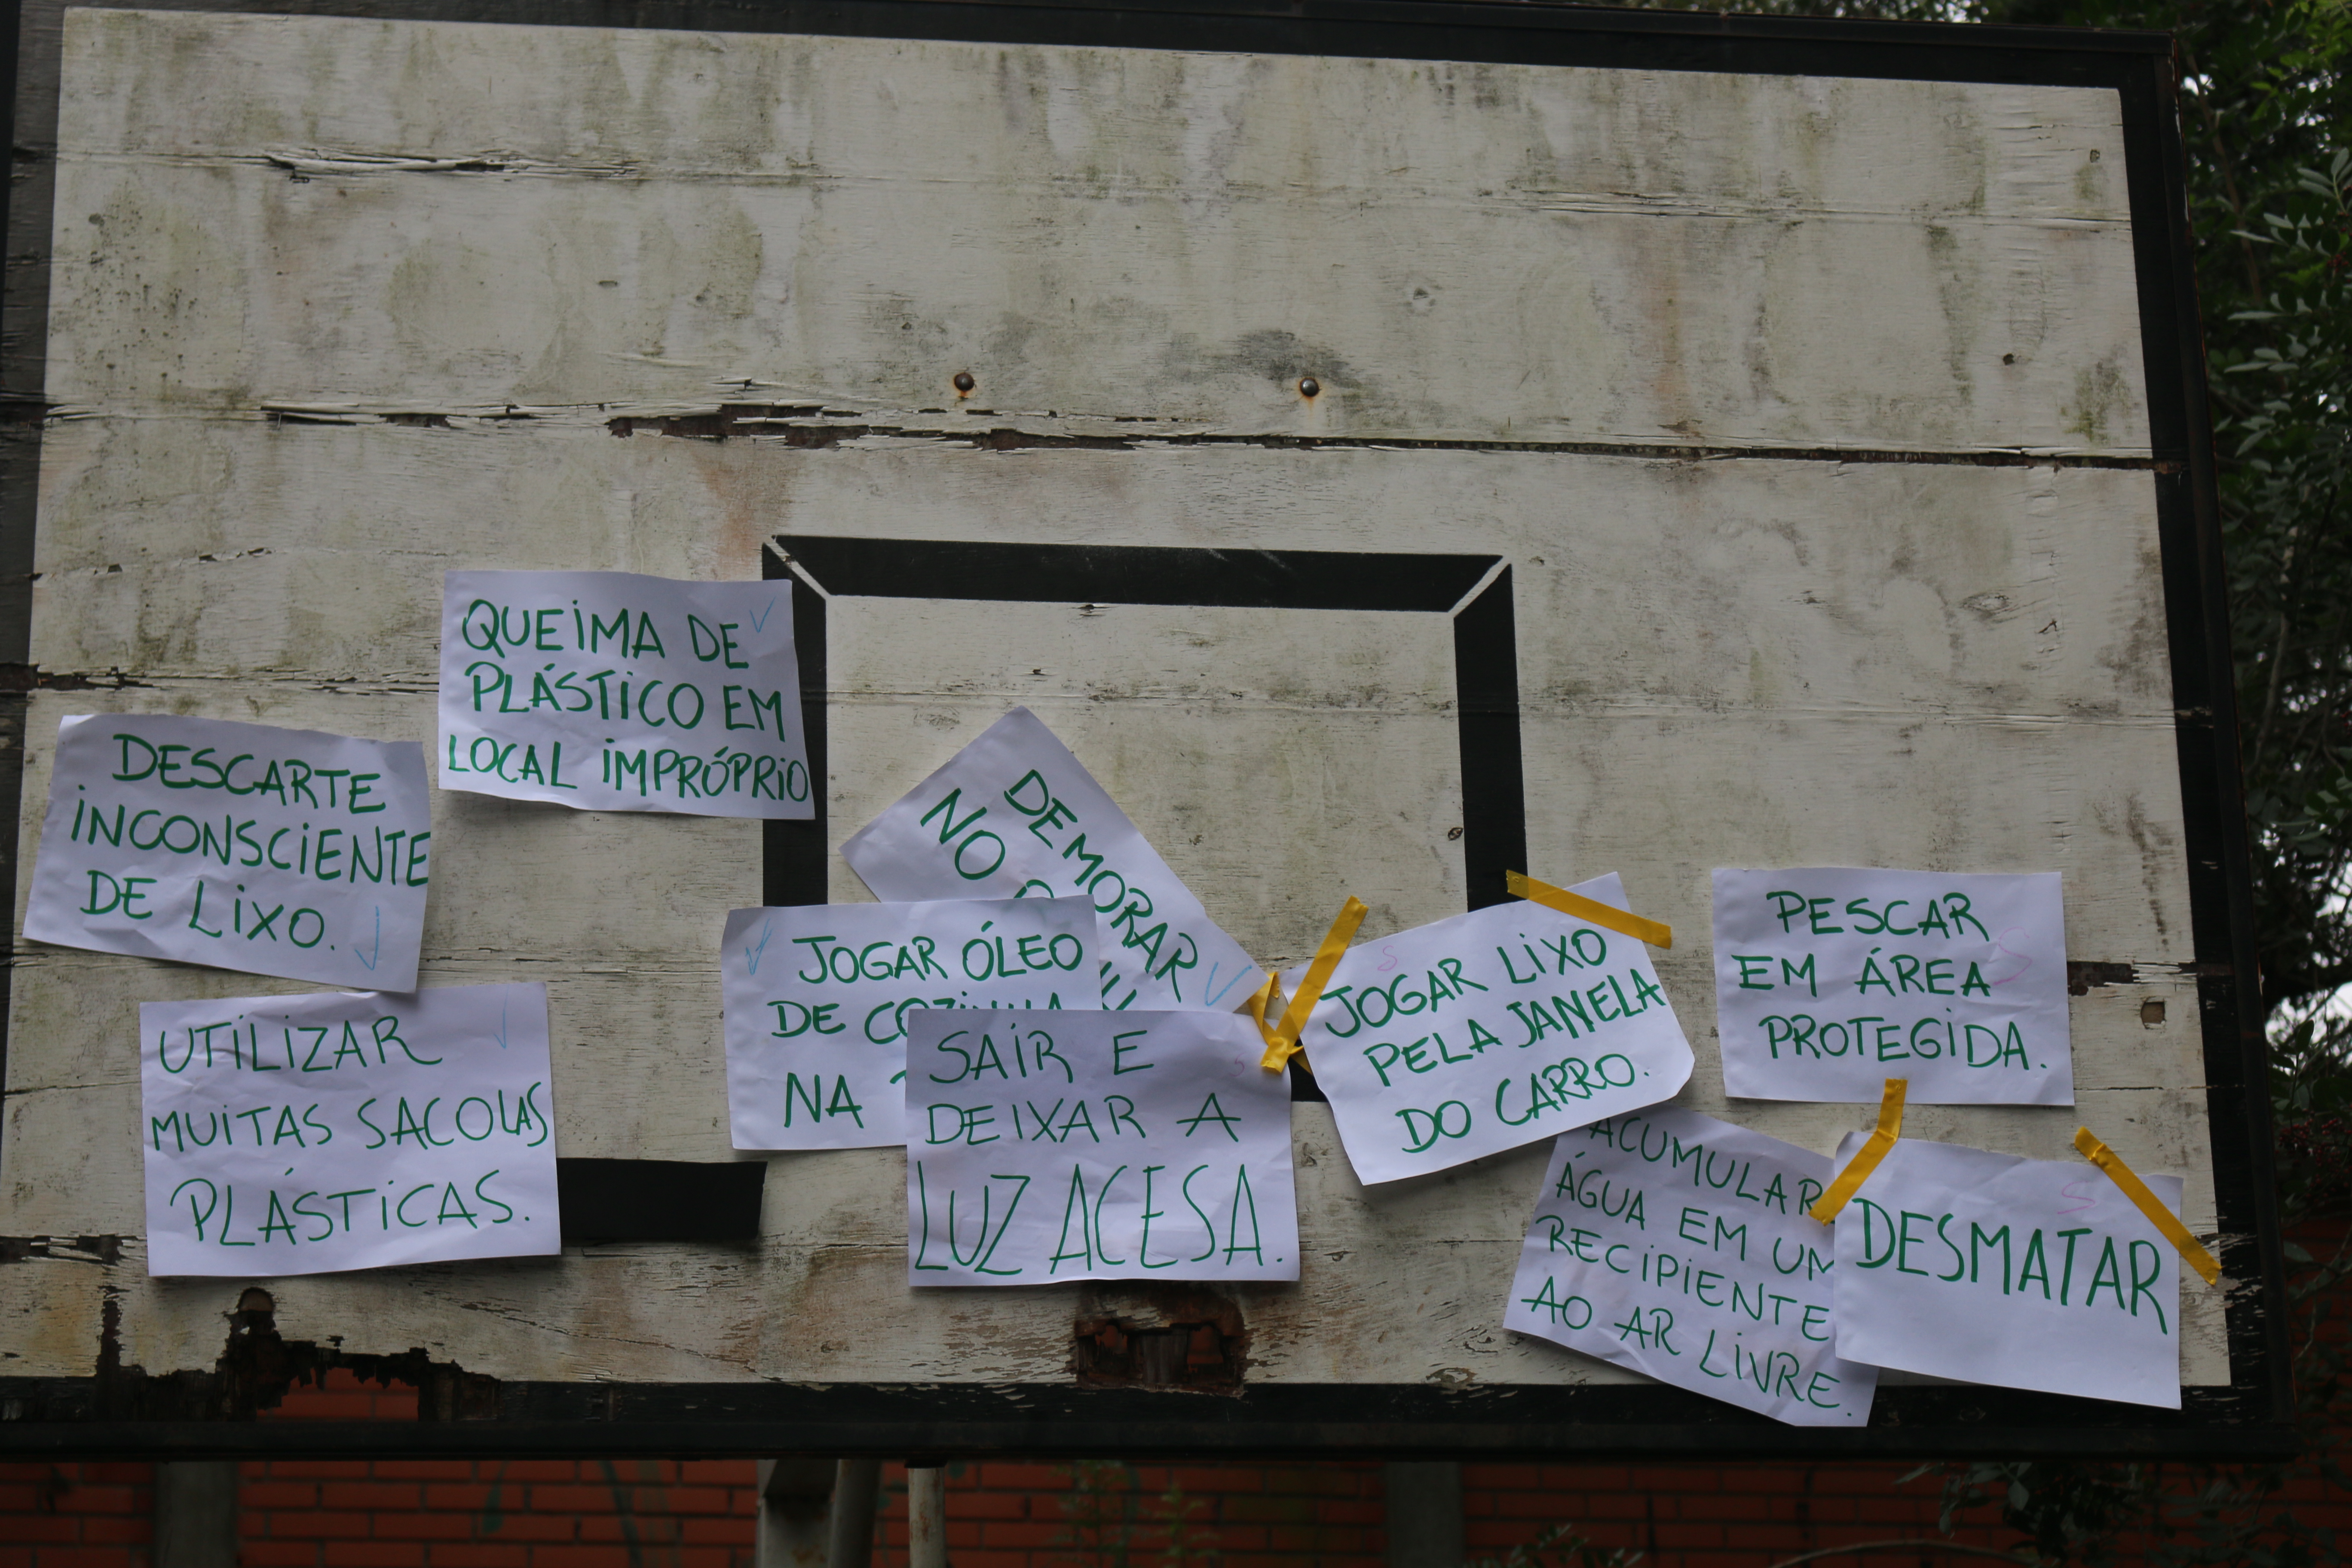 QUEIMA DE
PLÁSTICO EM
LOCAL IMPRÓPRIO
DESCARTE
INCONSCIENTE
DE LIXO.
UTILIZAR
MUITAS SACOLAS
PLÁSTICAS.
DEMORAR
NO
JOGAR ÓLEO
DE COZINHA
NA
SAIR E
DEIXAR A
LUZ ACESA.
JOGAR LIXO
PELA JANELA
DO CARRO.
PESCAR
EM ÁREA
PROTEGIDA.
ACUMULAR
ÁGUA EM UM
RECIPIENTE
AO AR LIVRE.
DESMATAR